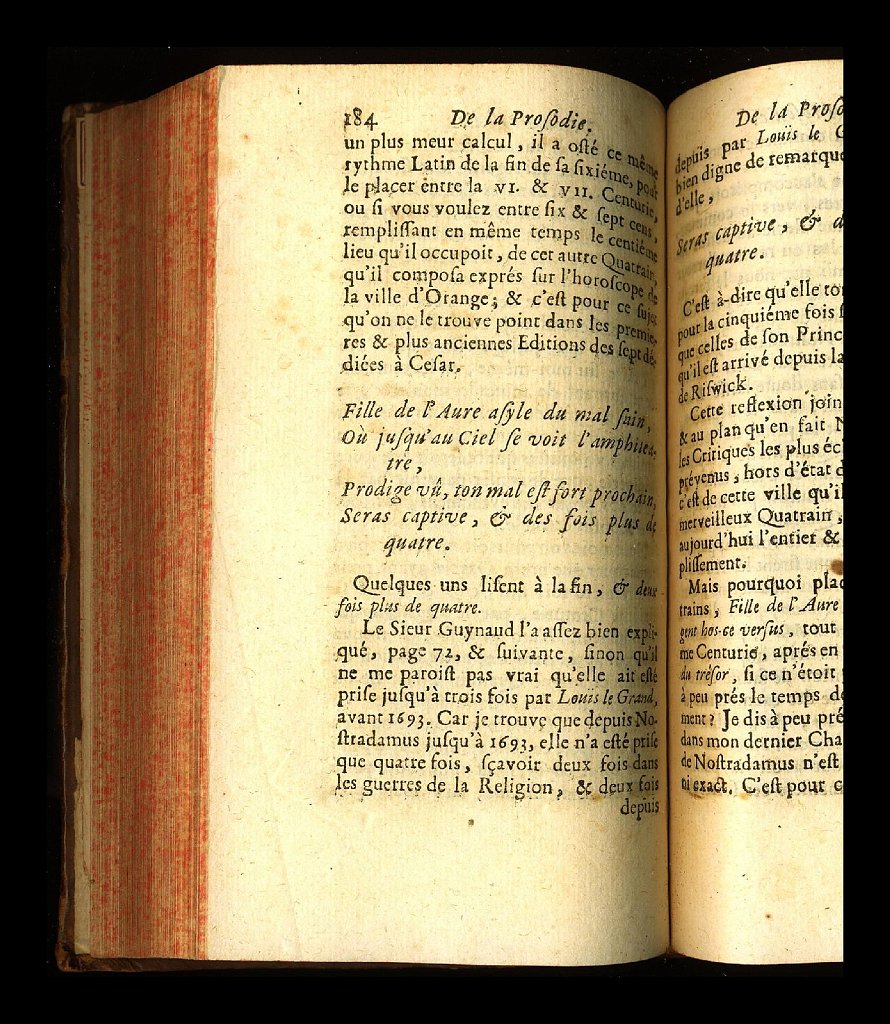 184 De la Prosodie.
un plus meur calcul, il a osté ce même
rythme Latin de la fin de sa sixiéme, pour
le placer entre la VI. & VII. Centurie,
ou si vous voulez entre six & sept cens,
remplissant en même temps le centiéme
lieu qu'il occupoit, de cet autre Quatrain,
qu'il composa exprés sur l'horoscope de
la ville d'Orange; & c'est pour ce sujet
qu'on ne le trouve point dans les premie-
res & plus anciennes Editions des sept dé-
diées à Cesar.
Fille de l'Aure asyle du mal sain,
Où jusqu'au Ciel se voit l'amphitea-
tre,
Prodige vû, ton mal est fort prochain,
Seras captive, & des fois plus de
quatre.
Quelques uns lisent à la fin, & deux
fois plus de quatre.
Le Sieur Guynaud l'a assez bien expli-
qué, page 72, & suivante, sinon qu'il
ne me paroist pas vrai qu'elle ait esté
prise jusqu'à trois fois par Louïs le Grand,
avant 1693. Car je trouve que depuis No-
stradamus jusqu'à 1693, elle n'a esté prise
que quatre fois, sçavoir deux fois dans
les guerres de la Religion, & deux fois
depuis
De la Proso
depuis par Louïs le G
bien digne de remarque
d'elle,
Seras captive, & d
quatre.
C'est à-dire qu'elle to
pour la cinquiéme fois s
que celles de son Princ
qu'il est arrivé depuis la
de Riswick.
Cette reflexion join
& au plan qu'en fait N
les Critiques les plus éc
prévenus, hors d'état d
c'est de cette ville qu'il
merveilleux Quatrain,
aujourd'hui l'entier &
plissement.
Mais pourquoi plac
trains, Fille de l'Aure
gent hos-ce versus, tout
me Centurie, aprés en
du trésor, si ce n'étoit
à peu prés le temps de
ment? Je dis à peu pré
dans mon dernier Cha
de Nostradamus n'est
ni exact. C'est pour c